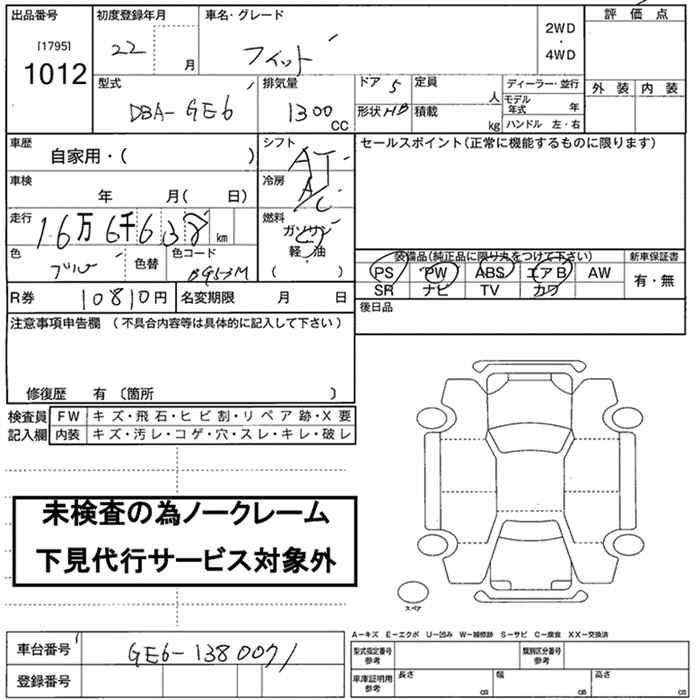 出品番号 初度登録年月 車名・グレード 評価点
[1795] 22 月 フィット 2WD・4WD
1012
外装 内装
型式 排気量 ドア 5 定員 人 ディーラー・並行
DBA-GE6 1300 CC 形状 HB 積載 kg モデル年式 年
ハンドル 左・右
車歴 シフト セールスポイント(正常に機能するものに限ります)
自家用・( ) AT
車検 年 月( 日) 冷房 AC
走行 16万6千638 km 燃料 ガソリン
軽・油
( )
色 ブルー 色替 色コード BG53M
装備品(純正品に限り丸をつけて下さい) 新車保証書
PS PW ABS エアB AW 有・無
SR ナビ TV カワ
R券 10810円 名変期限 月 日 後日品
注意事項申告欄 (不具合内容等は具体的に記入して下さい)
修復歴 有 〔箇所 〕
検査員 FW キズ・飛石・ヒビ割・リペア跡・X要
記入欄 内装 キズ・汚レ・コゲ・穴・スレ・キレ・破レ
未検査の為ノークレーム
下見代行サービス対象外
スペア
A-キズ E-エクボ U-凹み W-補修跡 S-サビ C-腐食 XX-交換済
車台番号 GE6-1380071 型式指定番号 参考 類別区分番号 参考
登録番号 車庫証明用 参考 長さ cm 幅 cm 高さ cm